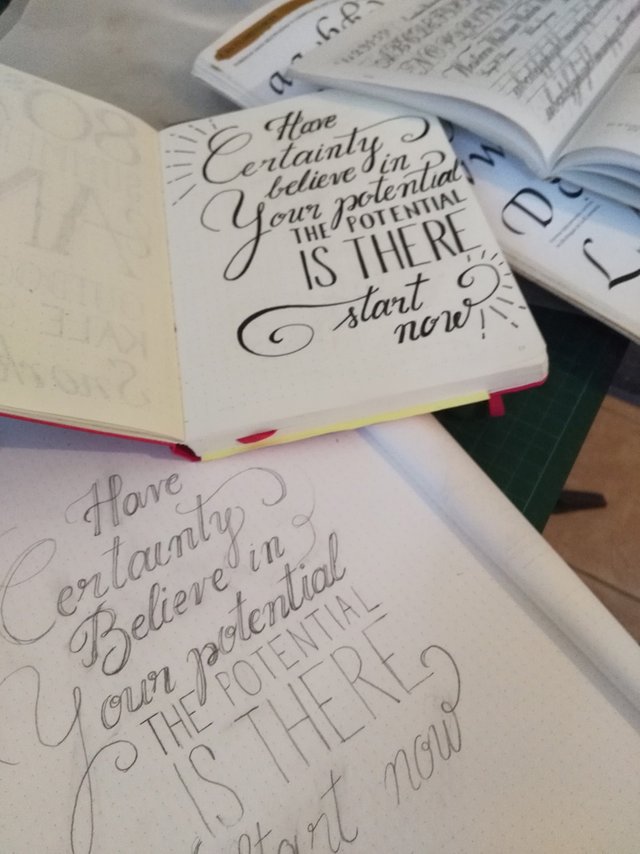 Have
Certainty
believe in
Your potential
THE POTENTIAL
IS THERE
start
now
Have
Certainty
Believe in
Your potential
THE POTENTIAL
IS THERE
start now